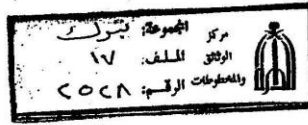 مركز
الوثائق
والمخطوطات
المجموعة: بترك
الملف: ١٧
الرقم: ٢٥٢٨